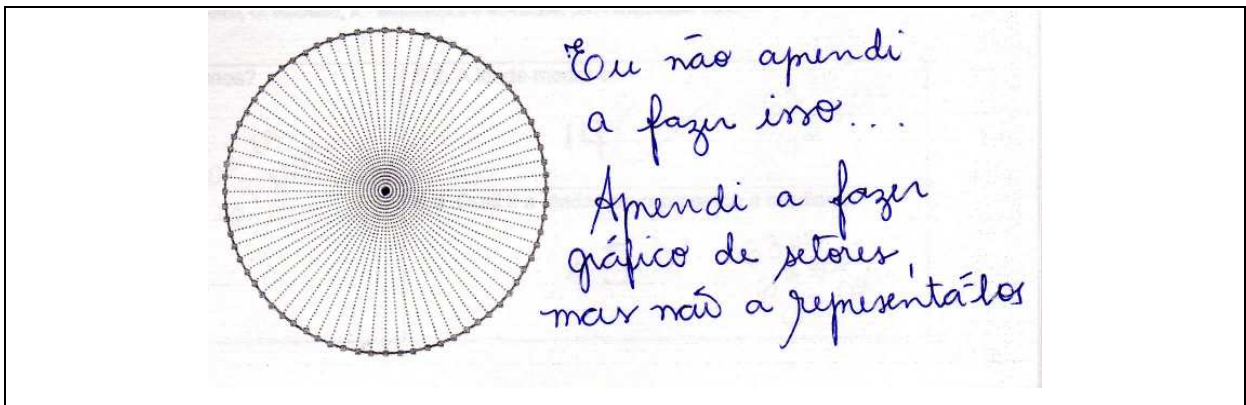 Eu não aprendi
a fazer isso...
Aprendi a fazer
gráfico de setores,
mas não a representá-los